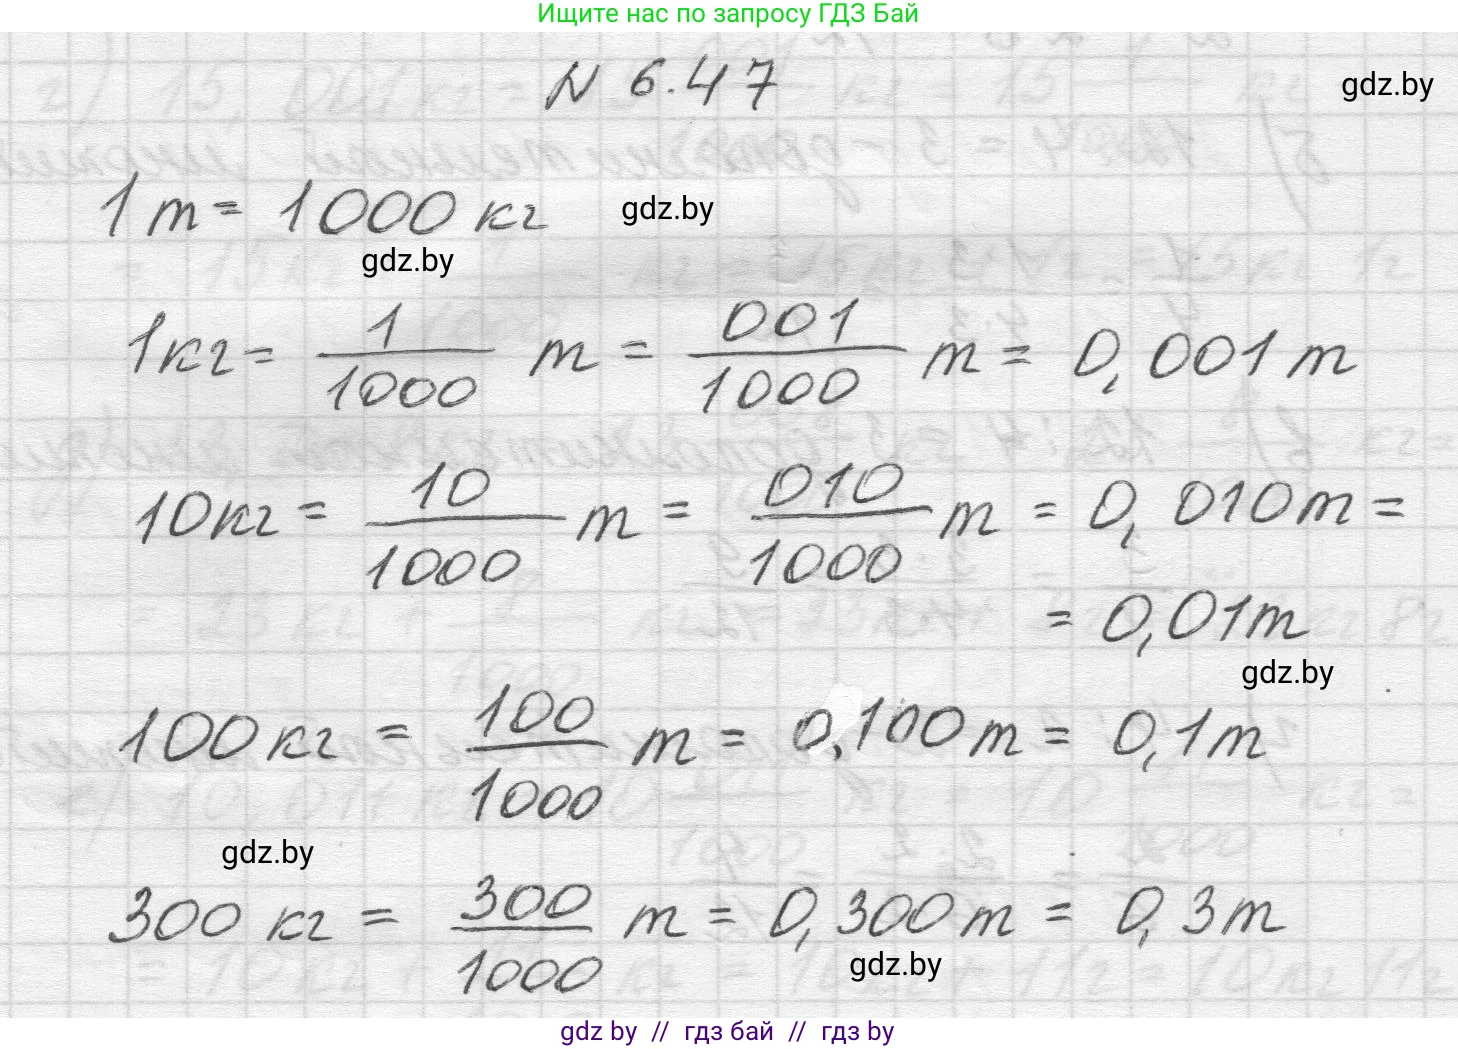 Ищите нас по запросу ГДЗ Бай
N 6.47
gdz.by
1 т = 1000 кг
gdz.by
gdz.by
1 кг = 1/1000 т = 001/1000 т = 0,001 т
10 кг = 10/1000 т = 010/1000 т = 0,010 т =
= 0,01 т
gdz.by
100 кг = 100/1000 т = 0,100 т = 0,1 т
gdz.by
300 кг = 300/1000 т = 0,300 т = 0,3 т
gdz.by
gdz by // гдз бай // gdz by